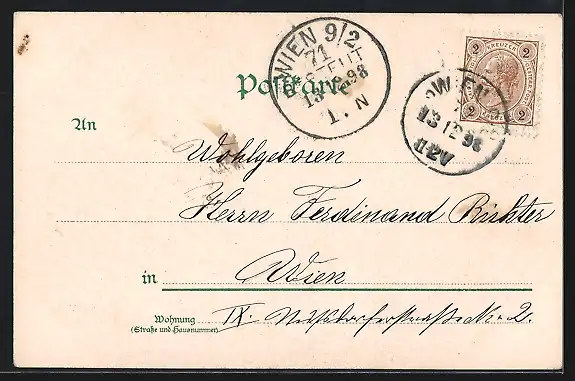 WIEN 9/2
71
13.12.98
1. N
Postkarte
2 KREUZER 2
2 2
WIEN
13 12 98
12V
An
Wohlgeboren
Herrn Ferdinand Richter
in Wien
Wohnung
(Straße und Hausnummer)
IX. Nußdorferstraße No 2.